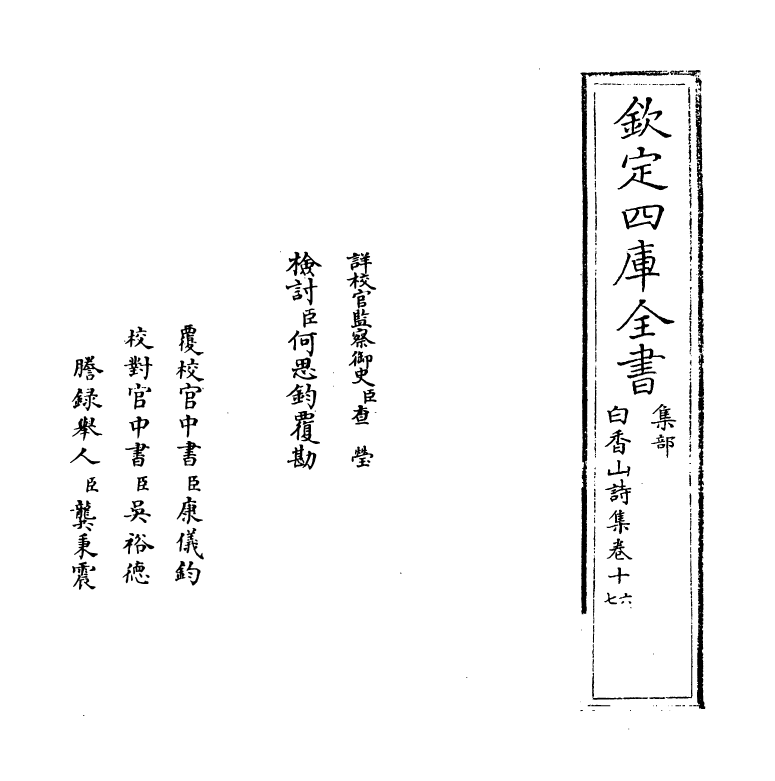 欽定四庫全書
集部
白香山詩集卷十六
七
詳校官監察御史臣查瑩
檢討臣何思鈞覆勘
覆校官中書臣康儀鈞
校對官中書臣吳裕德
謄録舉人臣龔秉震